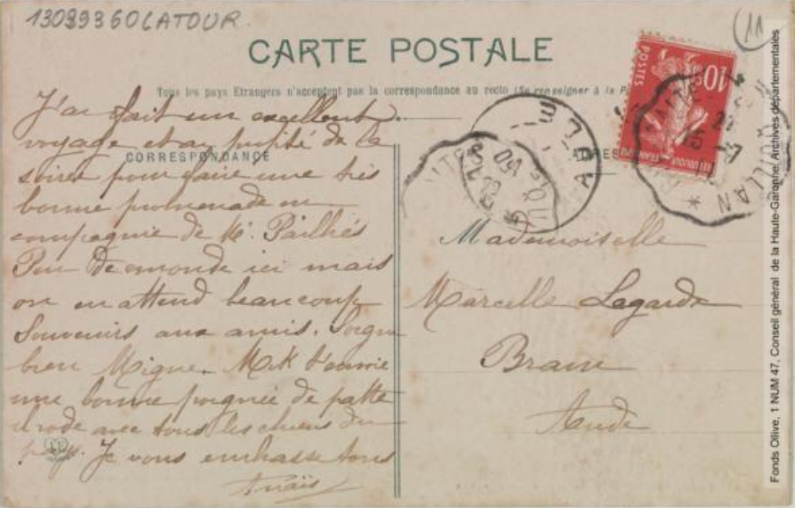 1309936OLATOUR
11
CARTE POSTALE
Tous les pays Etrangers n'acceptent pas la correspondance au recto (Se renseigner à la P
CORRESPONDANCE
ADRES
J'ai fait un excellent
voyage et ai profité de la
soirée pour faire une très
bonne promenade en
compagnie de M. Pailhés
Peu de monde ici mais
on en attend beaucoup
Souvenirs aux amis. Soigne
bien Migne. M.K t'envoie
une bonne poignée de patte
il rode avec tous les chiens du
pays. Je vous embrasse tous
Anaïs
Mademoiselle
Marcelle Lagarde
Bram
Aude
10c
POSTES
REPUBLIQUE FRANÇAISE
QUILLAN
AUDE
Fonds Ollive, 1 NUM 47, Conseil général de la Haute-Garonne, Archives départementales